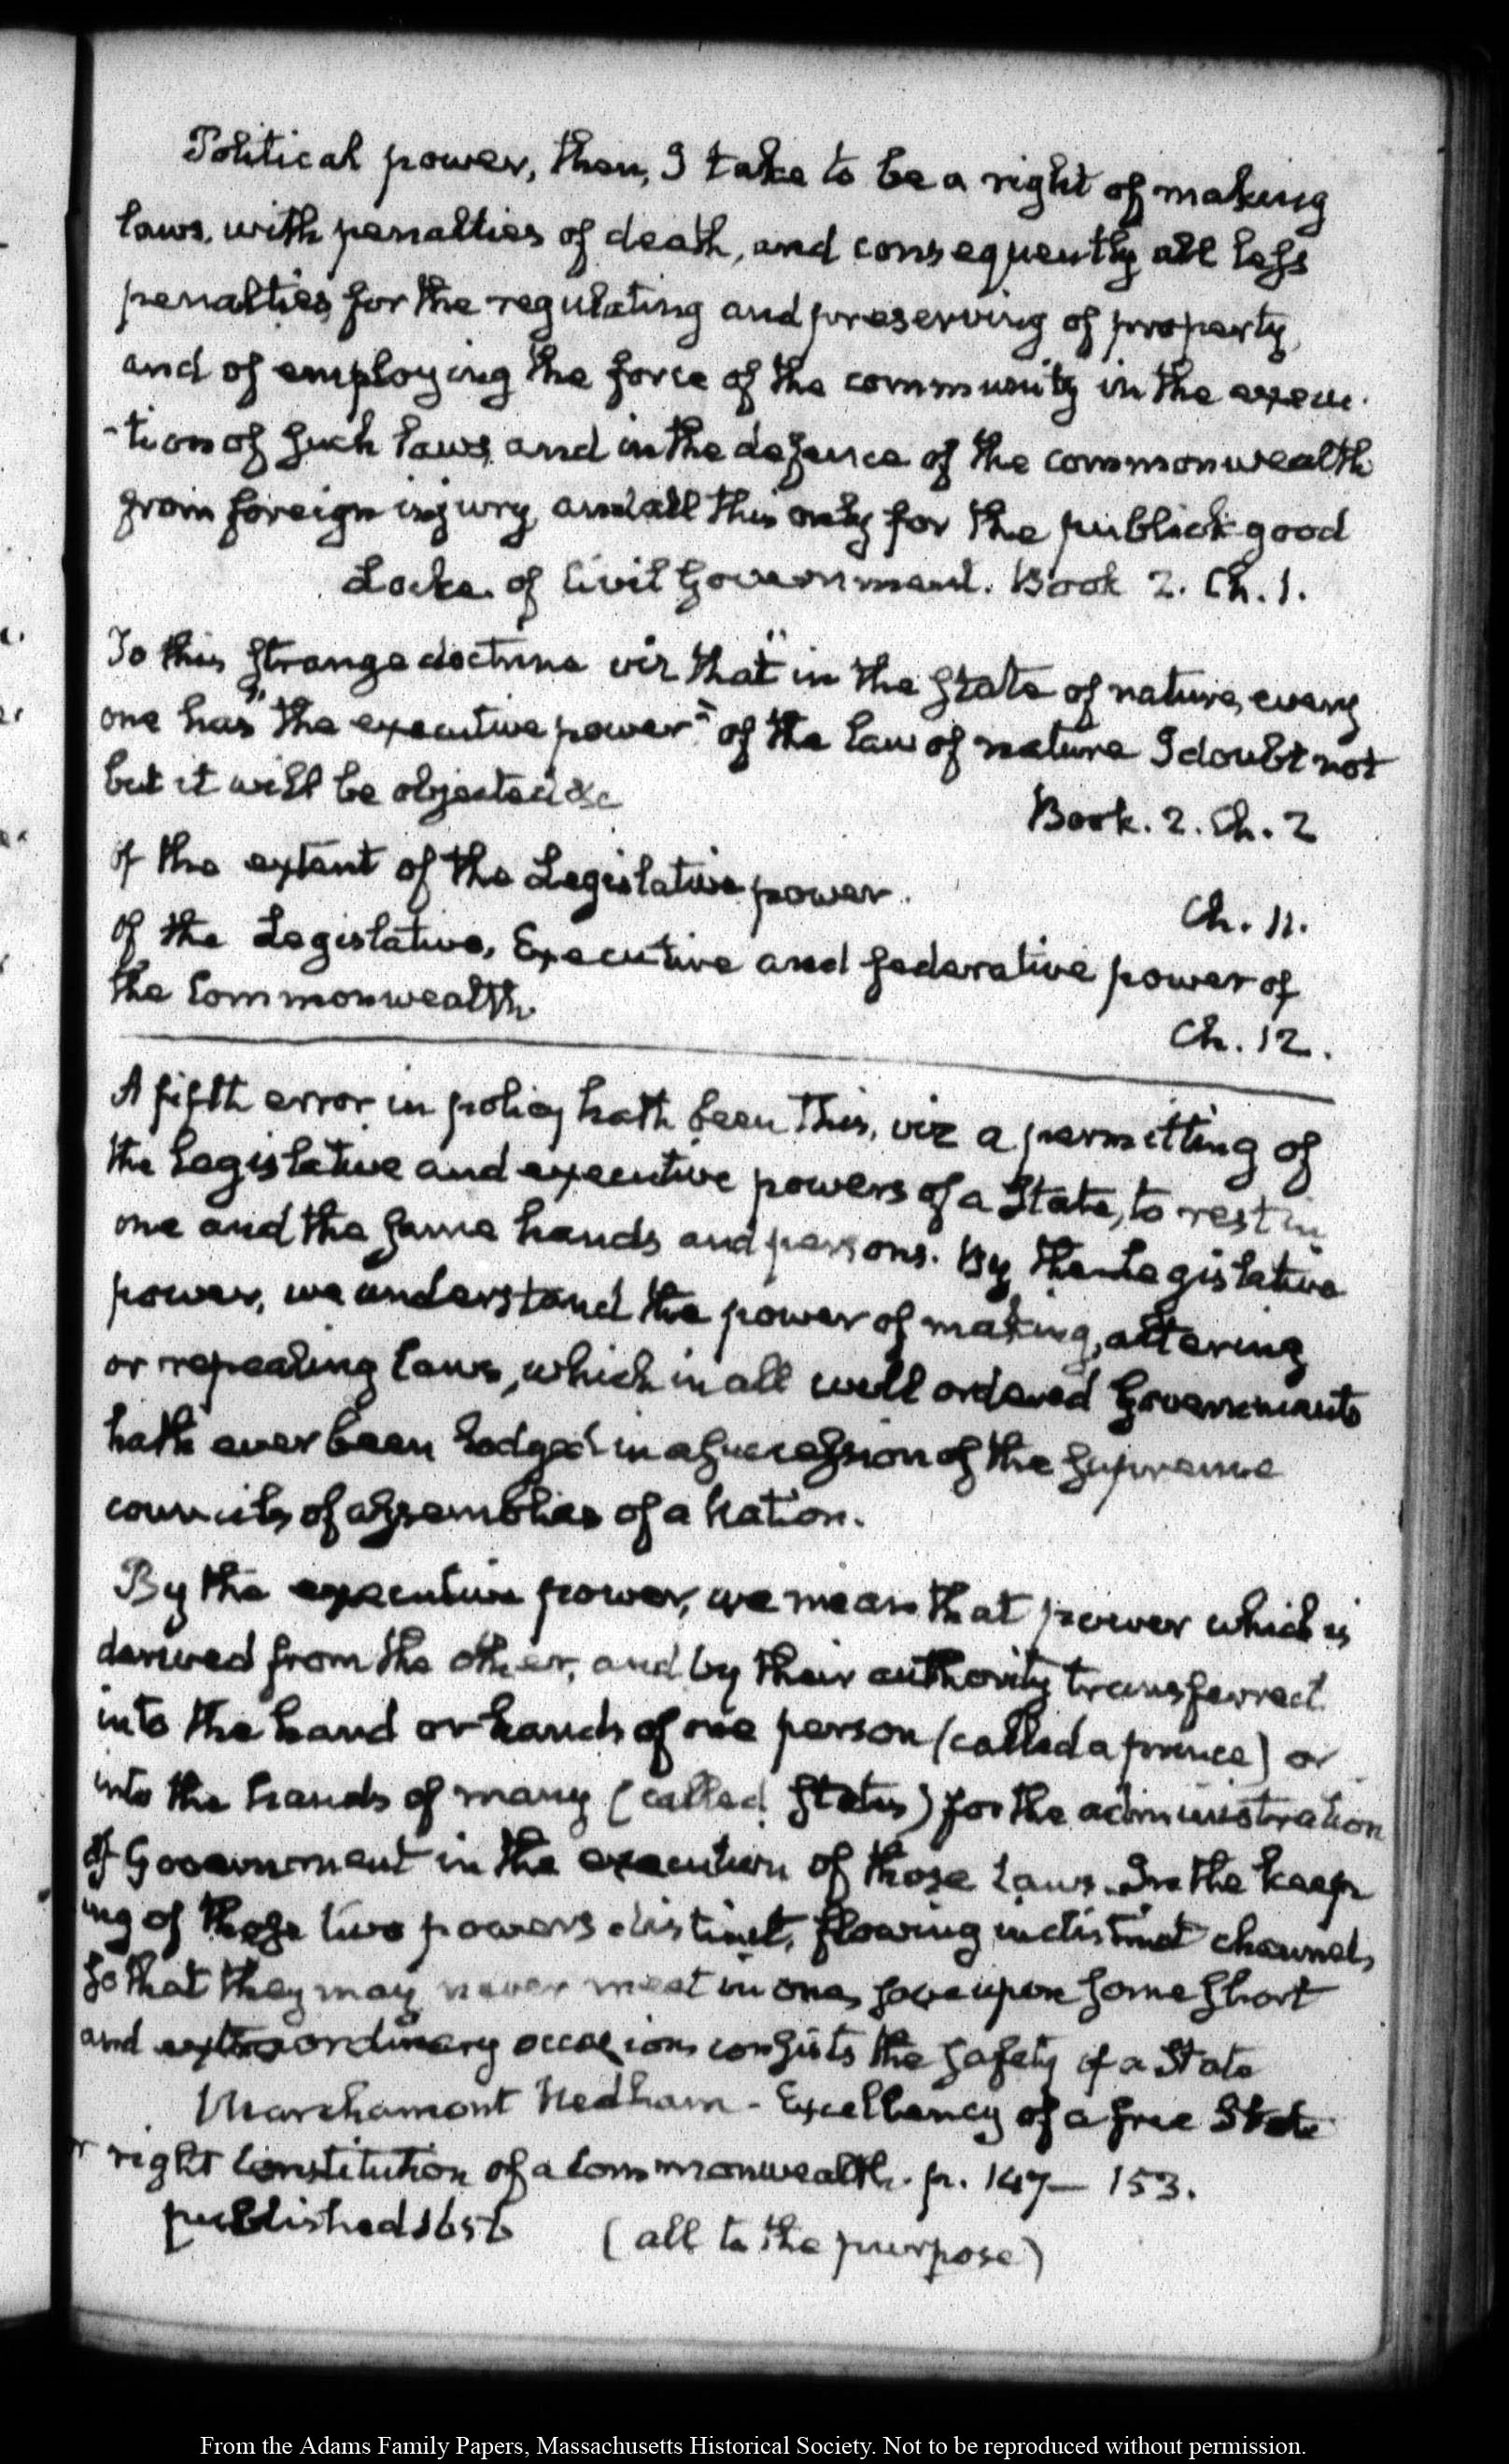 Political power, then, I take to be a right of making
laws, with penalties of death, and consequently all less
penalties for the regulating and preserving of property,
and of employing the force of the community in the execu-
-tion of such laws and in the defence of the commonwealth
from foreign injury and all this only for the publick good
Locke. of Civil Government. Book 2. Ch. 1.
To this strange doctrine viz that "in the state of nature, every
one has "the executive power" of the law of nature I doubt not
but it will be objected &c
Book. 2. Ch. 2
of the extent of the Legislative power.
Ch. 11.
of the Legislative, Executive and federative power of
the Commonwealth
Ch. 12.
A fifth error in policy hath been this, viz a permitting of
the Legislative and executive powers of a State, to rest in
one and the same hands and persons. By the Legislative
power, we understand the power of making, altering
or repealing laws, which in all well ordered Governments
hath ever been lodged in a succession of the supreme
councils of assemblies of a Nation.
By the executive power, we mean that power which is
derived from the other, and by their authority transferred
into the hand or hands of one person (called a prince) or
into the hands of many (called States) for the administration
of Government in the execution of those Laws. In the keep
ing of these two powers distinct, flowing in distinct channels,
so that they may never meet in one, save upon some short
and extraordinary occasion consists the safety of a State
Marchamont Nedham - Excellency of a free State
or right Constitution of a Commonwealth. p. 147— 153.
published 1656 (all to the purpose)
From the Adams Family Papers, Massachusetts Historical Society. Not to be reproduced without permission.